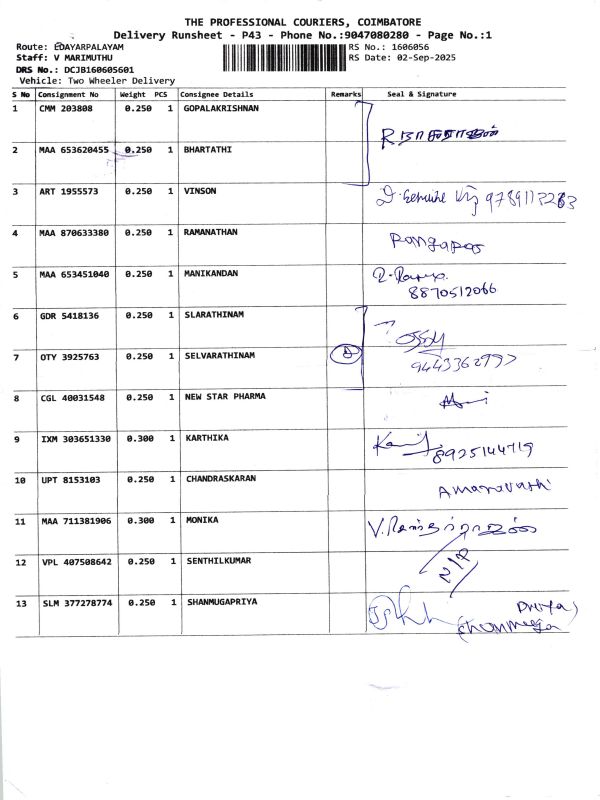 THE PROFESSIONAL COURIERS, COIMBATORE
Delivery Runsheet - P43 - Phone No.:9047080280 - Page No.:1
Route: EDAYARPALAYAM RS No.: 1606056
Staff: V MARIMUTHU RS Date: 02-Sep-2025
DRS No.: DCJB160605601
Vehicle: Two Wheeler Delivery
S No Consignment No Weight PCS Consignee Details Remarks Seal & Signature
1 CMM 203808 0.250 1 GOPALAKRISHNAN
2 MAA 653620455 0.250 1 BHARTATHI
3 ART 1955573 0.250 1 VINSON
4 MAA 870633380 0.250 1 RAMANATHAN
5 MAA 653451040 0.250 1 MANIKANDAN
8870512066
6 GDR 5418136 0.250 1 SLARATHINAM
7 OTY 3925763 0.250 1 SELVARATHINAM
8 CGL 40031548 0.250 1 NEW STAR PHARMA
9 IXM 303651330 0.300 1 KARTHIKA 8925144719
10 UPT 8153103 0.250 1 CHANDRASKARAN Amaravathi
11 MAA 711381906 0.300 1 MONIKA
12 VPL 407508642 0.250 1 SENTHILKUMAR
13 SLM 377278774 0.250 1 SHANMUGAPRIYA